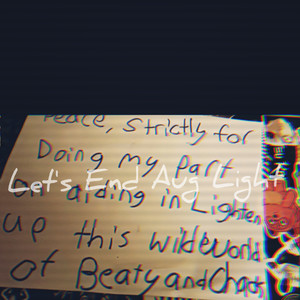 Peace, Strictly for
Doing my part
Let's End Aug Light
aiding in Lighten
up this wildeworld
of Beaty and Chaos